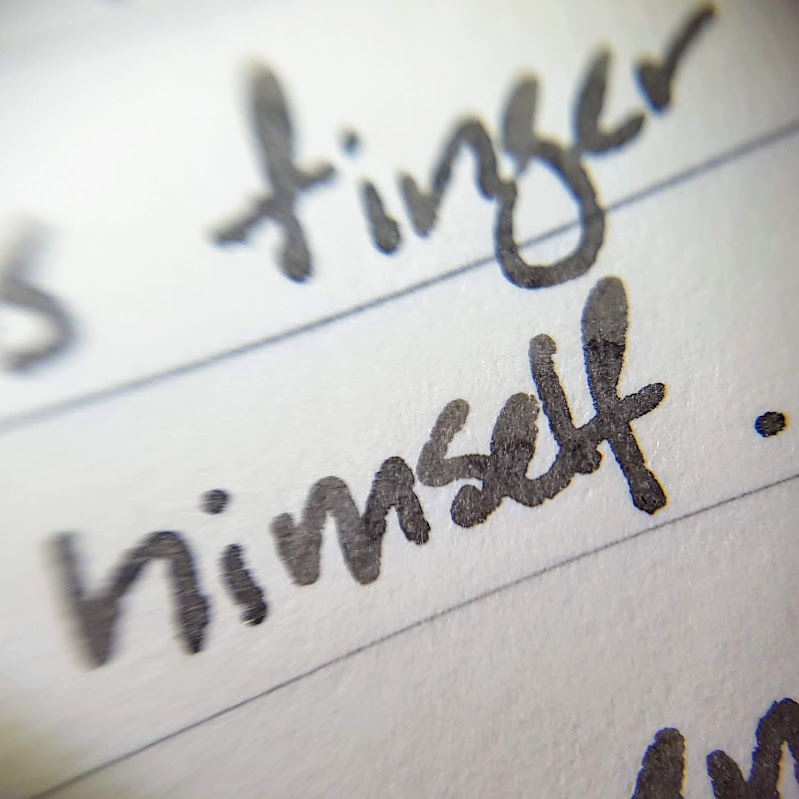 s finger
himself.